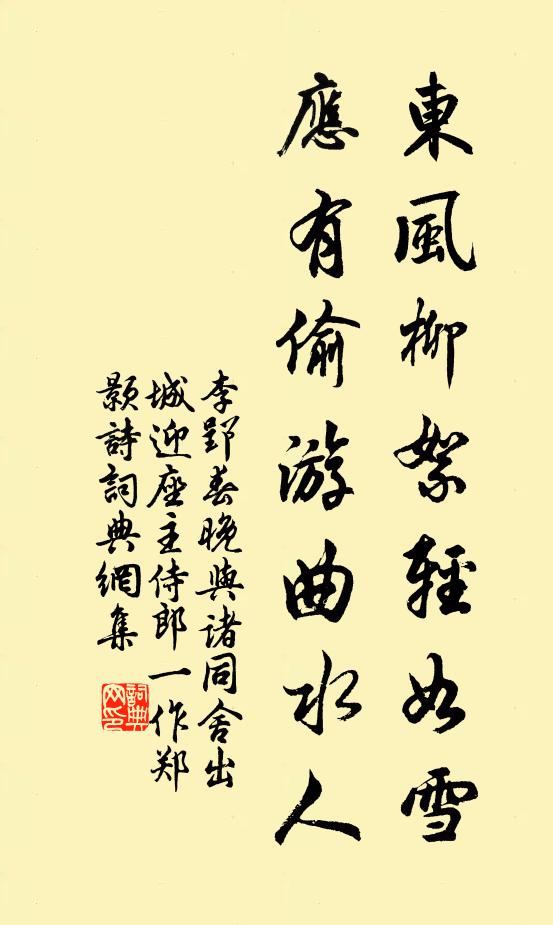 東風柳絮輕如雪
應有偷游曲水人
李郢春晚與諸同舍出
城迎座主侍郎一作郑
颢詩詞典網集
詞典
网印